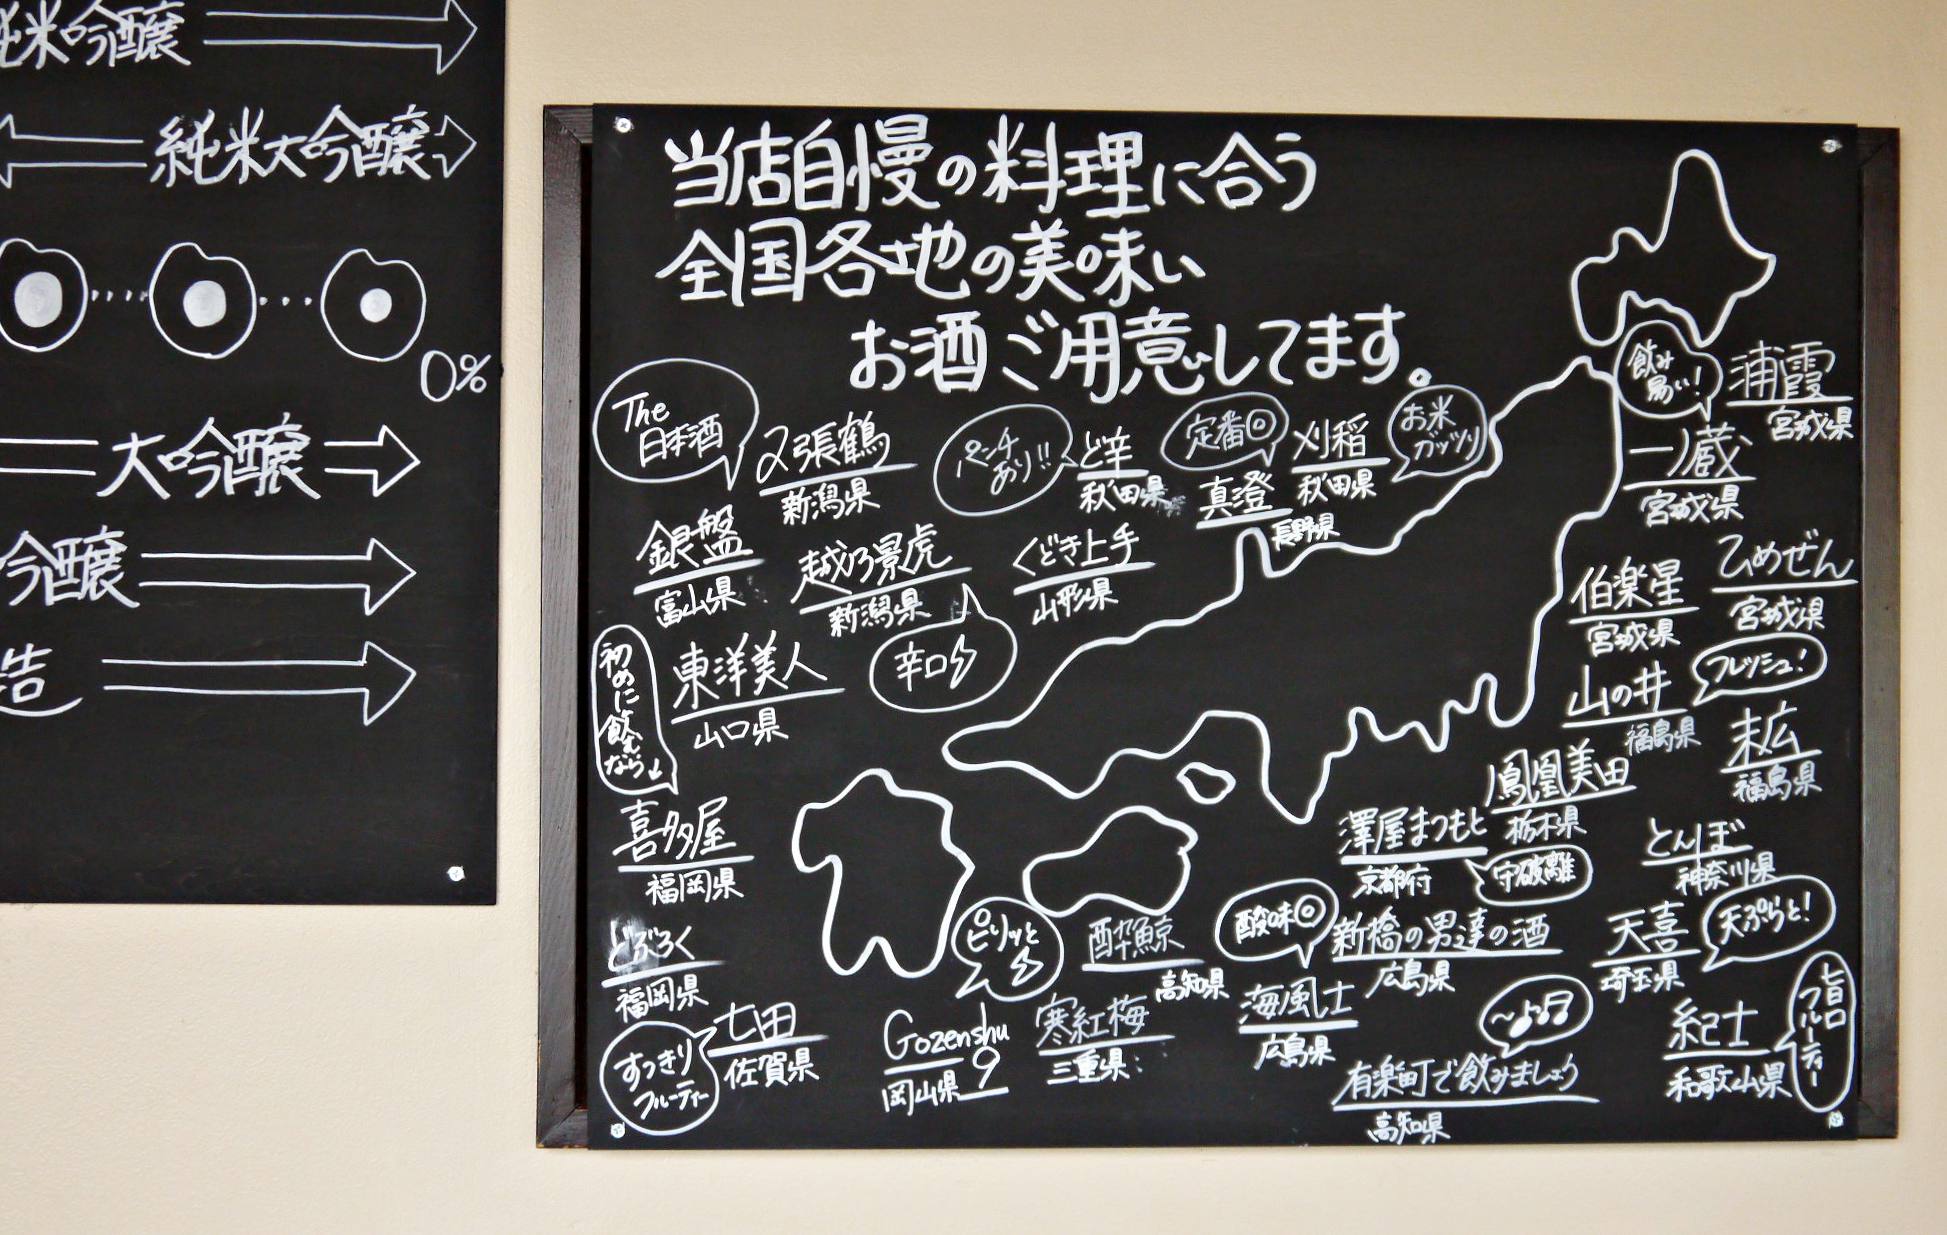 純米吟醸
純米大吟醸
0%
大吟醸
吟醸
造
当店自慢の料理に合う
全国各地の美味い
お酒ご用意してます。
The
日本酒
〆張鶴
新潟県
パンチ
あり!!
ど辛
秋田県
定番◎
真澄
長野県
刈稲
秋田県
お米
ガッツリ
飲み
易い!
浦霞
宮城県
一ノ蔵
宮城県
銀盤
富山県
越乃景虎
新潟県
辛口
くどき上手
山形県
伯楽星
宮城県
ひめぜん
宮城県
初めに飲むなら
東洋美人
山口県
山の井
福島県
フレッシュ!
末広
福島県
喜多屋
福岡県
鳳凰美田
栃木県
澤屋まつもと
京都府
守破離
とんぼ
神奈川県
どぶろく
福岡県
ピリッと
酔鯨
高知県
酸味◎
新橋の男達の酒
広島県
天喜
埼玉県
天ぷらと!
七田
佐賀県
すっきり
フルーティー
Gozenshu
9
岡山県
寒紅梅
三重県
海風土
広島県
〜♪
有楽町で飲みましょう
高知県
紀士
和歌山県
旨口
フルーティー